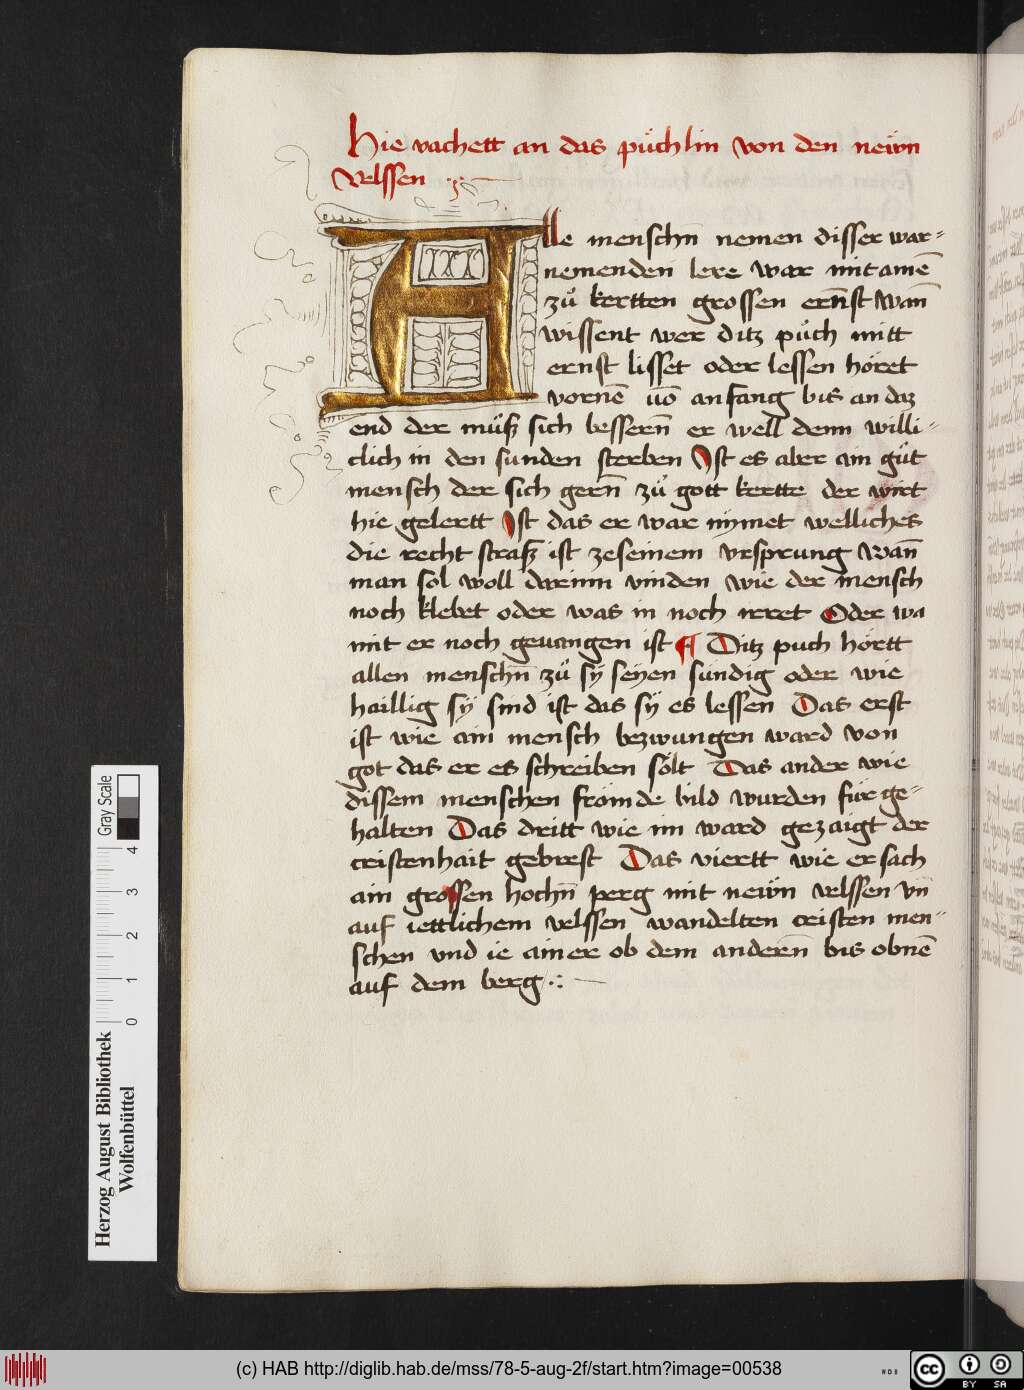 Hie vachett an das püchlin von den neẅn
velssen
Alle menschn̄ nemen disser war-
nemenden lere war mit amē
zů kertten grossen ern̄st wan̄
wissent wer ditz půch mitt
ernst lisset oder lessen höret
vornē uō anfang bis an daz
end der můß sich bessern̄ er well denn willi-
clich in den sunden sterben Ist es aber ain gůt
mensch der sich gern̄ zů gott kertte der wirt
hie gelertt Ist das er war nymet welliches
die recht straß ist ze seinem vrsprung wan̄
man sol woll darinn vinden wie der mensch
noch klebet oder was in noch irret Oder wa
mit er noch geuangen ist ¶ Ditz puch hörtt
allen menschn̄ zů sÿ seyen sündig oder wie
haillig sÿ sind ist das sÿ es lessen Das erst
ist wie ain mensch bezwungen ward von
got das er es schreiben sölt Das ander wie
dissem menschen frömde bild wurden für ge-
halten Das dritt wie im ward gezaigt der
cristenhait gebrest Das viertt wie er sach
ain grossen hochn̄ perg mit neẅn velssen vn̄
auf iettlichem velssen wandelten cristen men-
schen vnd ie ainer ob dem andern̄ bis obnē
auf dem berg
Gray Scale
0 1 2 3 4
Herzog August Bibliothek
Wolfenbüttel
(c) HAB http://diglib.hab.de/mss/78-5-aug-2f/start.htm?image=00538
WDB
cc BY SA